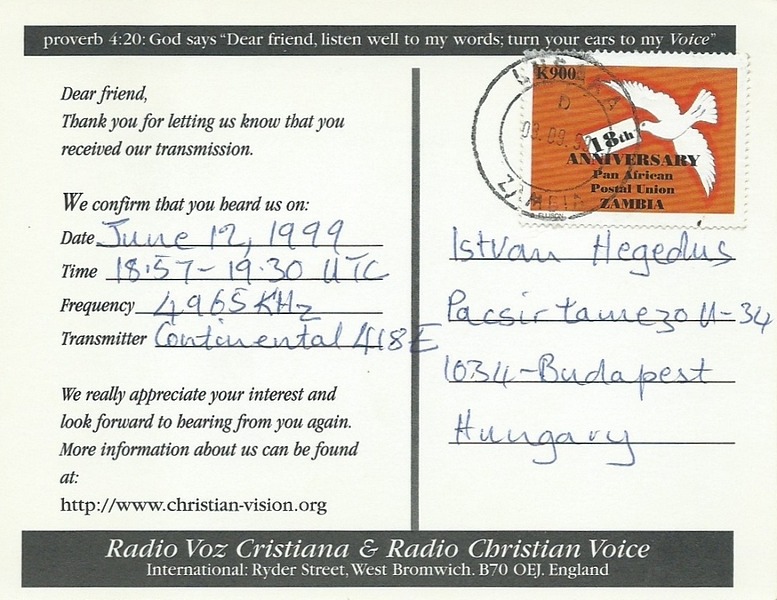 proverb 4:20: God says "Dear friend, listen well to my words; turn your ears to my Voice"
Dear friend,
Thank you for letting us know that you
received our transmission.
We confirm that you heard us on:
Date June 12, 1999
Time 18:57-19.30 UTC
Frequency 4965 KHz
Transmitter Continental 418E
We really appreciate your interest and
look forward to hearing from you again.
More information about us can be found
at:
http://www.christian-vision.org
K900
LUSAKA
D
ZAMBIA
18th
ANNIVERSARY
Pan African
Postal Union
ZAMBIA
Istvan Hegedus
Pacsirtamezo U-34
1034-Budapest
Hungary
Radio Voz Cristiana & Radio Christian Voice
International: Ryder Street, West Bromwich. B70 OEJ. England